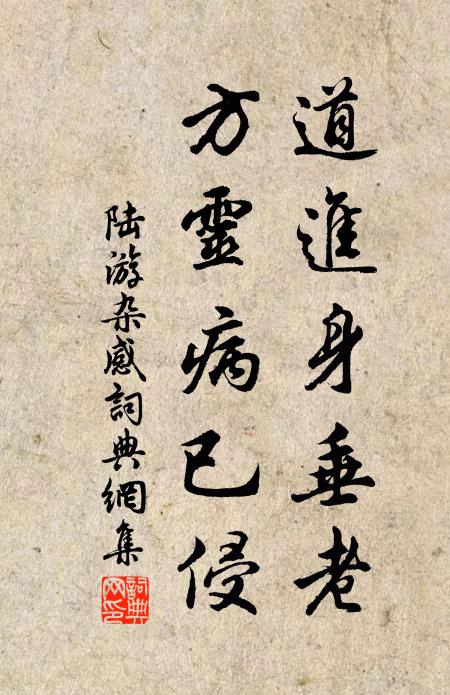 道進身垂老
方靈病已侵
陸游杂感詞典網集
詞典
网印